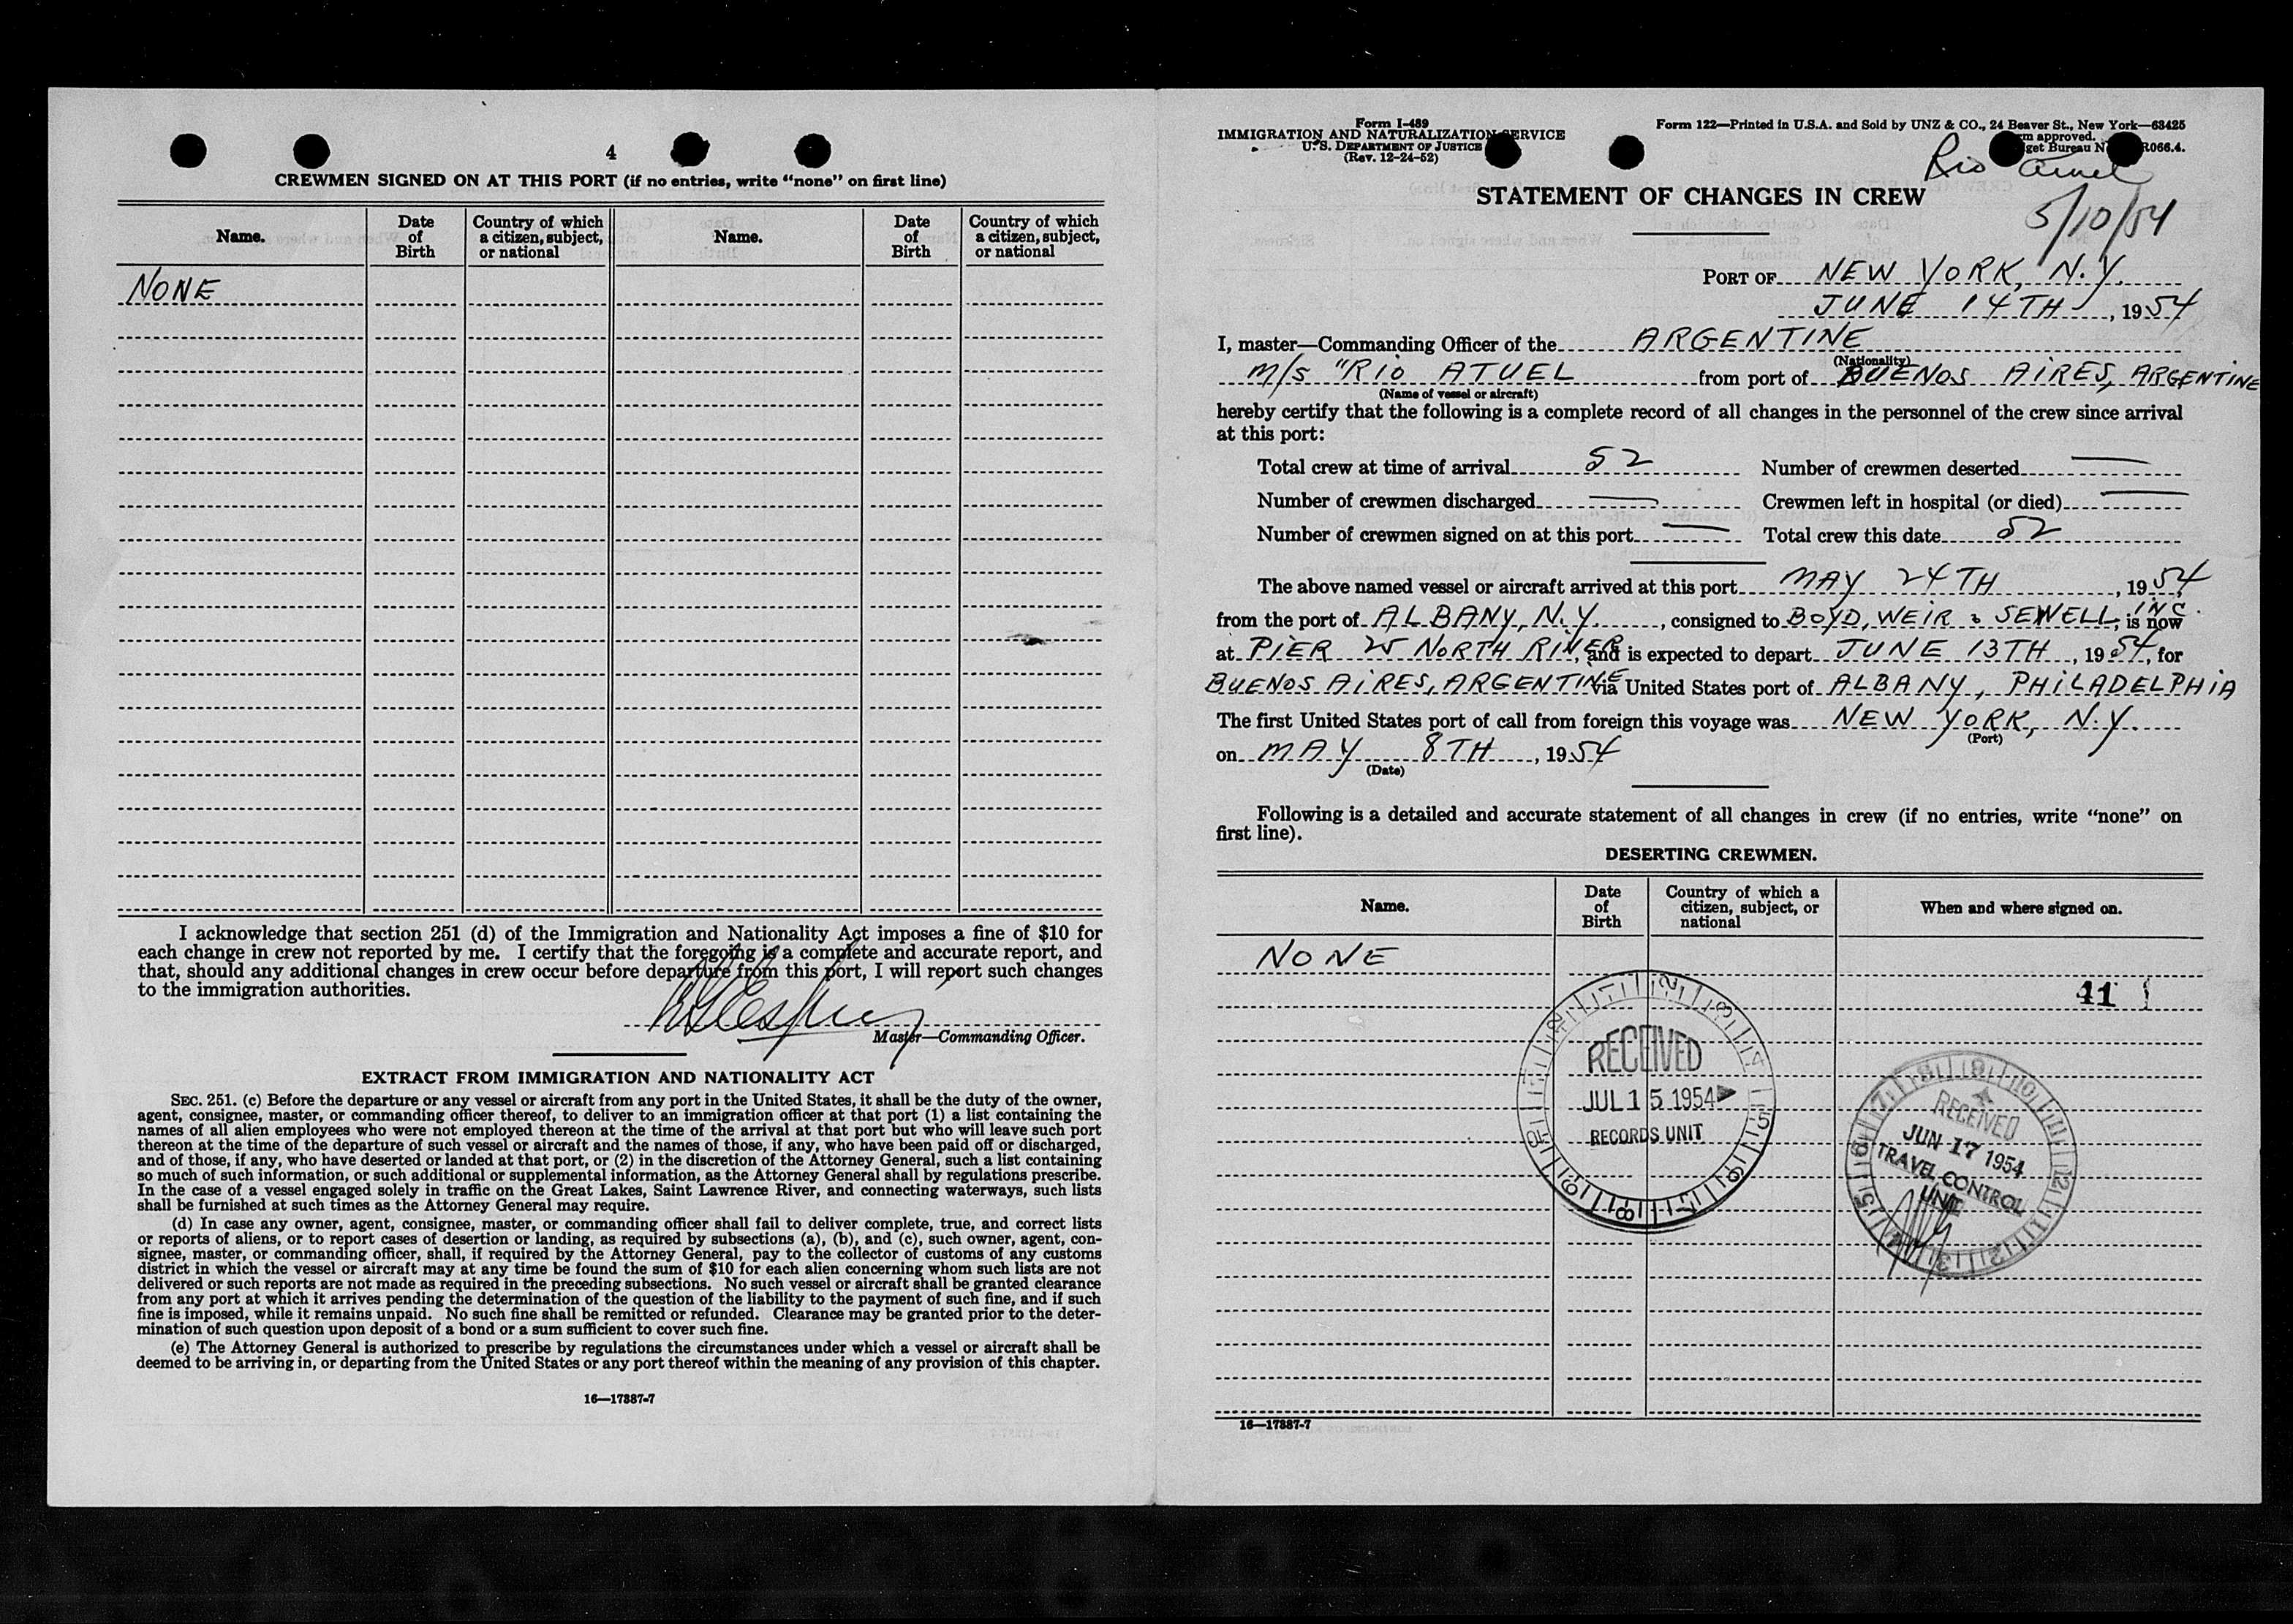 4
CREWMEN SIGNED ON AT THIS PORT (if no entries, write “none” on first line)
Name. Date of Birth Country of which a citizen, subject, or national Name. Date of Birth Country of which a citizen, subject, or national
NONE
I acknowledge that section 251 (d) of the Immigration and Nationality Act imposes a fine of $10 for
each change in crew not reported by me. I certify that the foregoing is a complete and accurate report, and
that, should any additional changes in crew occur before departure from this port, I will report such changes
to the immigration authorities.
Master—Commanding Officer.
EXTRACT FROM IMMIGRATION AND NATIONALITY ACT
SEC. 251. (c) Before the departure or any vessel or aircraft from any port in the United States, it shall be the duty of the owner,
agent, consignee, master, or commanding officer thereof, to deliver to an immigration officer at that port (1) a list containing the
names of all alien employees who were not employed thereon at the time of the arrival at that port but who will leave such port
thereon at the time of the departure of such vessel or aircraft and the names of those, if any, who have been paid off or discharged,
and of those, if any, who have deserted or landed at that port, or (2) in the discretion of the Attorney General, such a list containing
so much of such information, or such additional or supplemental information, as the Attorney General shall by regulations prescribe.
In the case of a vessel engaged solely in traffic on the Great Lakes, Saint Lawrence River, and connecting waterways, such lists
shall be furnished at such times as the Attorney General may require.
(d) In case any owner, agent, consignee, master, or commanding officer shall fail to deliver complete, true, and correct lists
or reports of aliens, or to report cases of desertion or landing, as required by subsections (a), (b), and (c), such owner, agent, con-
signee, master, or commanding officer, shall, if required by the Attorney General, pay to the collector of customs of any customs
district in which the vessel or aircraft may at any time be found the sum of $10 for each alien concerning whom such lists are not
delivered or such reports are not made as required in the preceding subsections. No such vessel or aircraft shall be granted clearance
from any port at which it arrives pending the determination of the question of the liability to the payment of such fine, and if such
fine is imposed, while it remains unpaid. No such fine shall be remitted or refunded. Clearance may be granted prior to the deter-
mination of such question upon deposit of a bond or a sum sufficient to cover such fine.
(e) The Attorney General is authorized to prescribe by regulations the circumstances under which a vessel or aircraft shall be
deemed to be arriving in, or departing from the United States or any port thereof within the meaning of any provision of this chapter.
16—17887-7
Form I-489
IMMIGRATION AND NATURALIZATION SERVICE
U. S. DEPARTMENT OF JUSTICE
(Rev. 12-24-52)
Form 122—Printed in U.S.A. and Sold by UNZ & CO., 24 Beaver St., New York—68425
approved.
Bureau R066.4.
Rio Atuel
5/10/54
STATEMENT OF CHANGES IN CREW
PORT OF NEW YORK, N.Y.
JUNE 14TH, 1954
I, master—Commanding Officer of the ARGENTINE
(Nationality)
M/S "RIO ATUEL from port of BUENOS AIRES, ARGENTINE
(Name of vessel or aircraft)
hereby certify that the following is a complete record of all changes in the personnel of the crew since arrival
at this port:
Total crew at time of arrival 52 Number of crewmen deserted —
Number of crewmen discharged — Crewmen left in hospital (or died) —
Number of crewmen signed on at this port — Total crew this date 52
The above named vessel or aircraft arrived at this port MAY 24TH, 1954,
from the port of ALBANY, N.Y., consigned to BOYD, WEIR & SEWELL, INC. is now
at PIER 25 NORTH RIVER, and is expected to depart JUNE 13TH, 1954, for
BUENOS AIRES, ARGENTINE via United States port of ALBANY, PHILADELPHIA
The first United States port of call from foreign this voyage was NEW YORK, N.Y.
(Port)
on MAY 8TH, 1954
(Date)
Following is a detailed and accurate statement of all changes in crew (if no entries, write “none” on
first line).
DESERTING CREWMEN.
Name. Date of Birth Country of which a citizen, subject, or national When and where signed on.
NONE
41
RECEIVED
JUL 15 1954
RECORDS UNIT
RECEIVED
JUN 17 1954
TRAVEL CONTROL
UNIT
16—17887-7